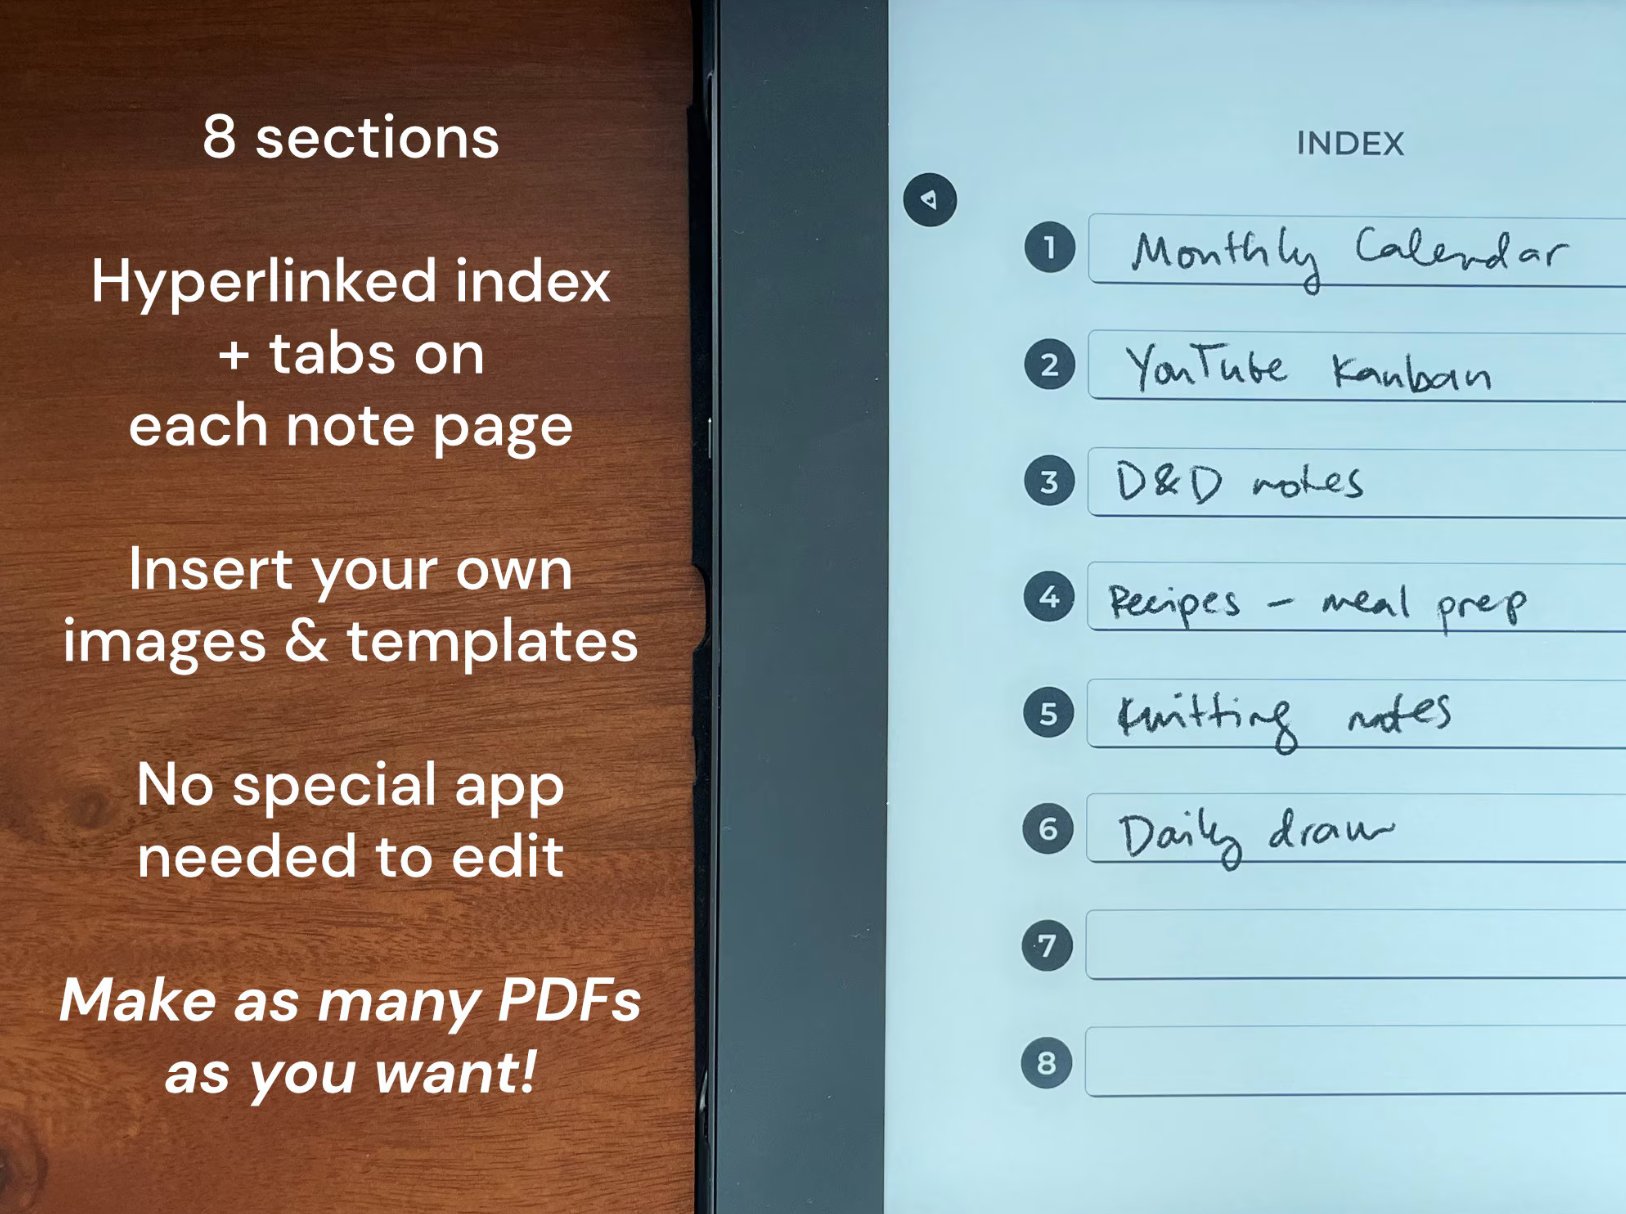 8 sections
Hyperlinked index
+ tabs on
each note page
Insert your own
images & templates
No special app
needed to edit
Make as many PDFs
as you want!
INDEX
1 Monthly Calendar
2 YouTube Kanban
3 D&D notes
4 Recipes - meal prep
5 Knitting notes
6 Daily draw
7
8